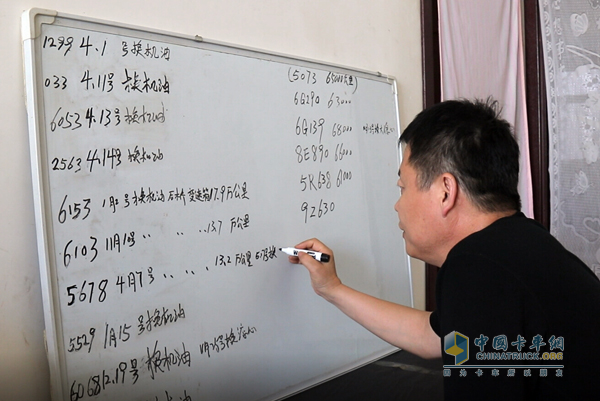 1299 4.1 号换机油
033 4.11号换机油
6053 4.13号换机油
2563 4.14号换机油
6153 1月2号换机油 后桥 变速箱17.9万公里
6103 11月1号 〃 〃 〃 〃13.7 万公里
5678 4月7号 〃 〃 〃 〃 13.2 万公里
5529 1月15号换机油
6068 12.19号换机油
(5073 65000公里
6G290 63000
6G139 68000
8E890 66000
5R638 61000
9Z630
中国卡车网
CHINATRUCK.ORG
因为卡车所以朋友